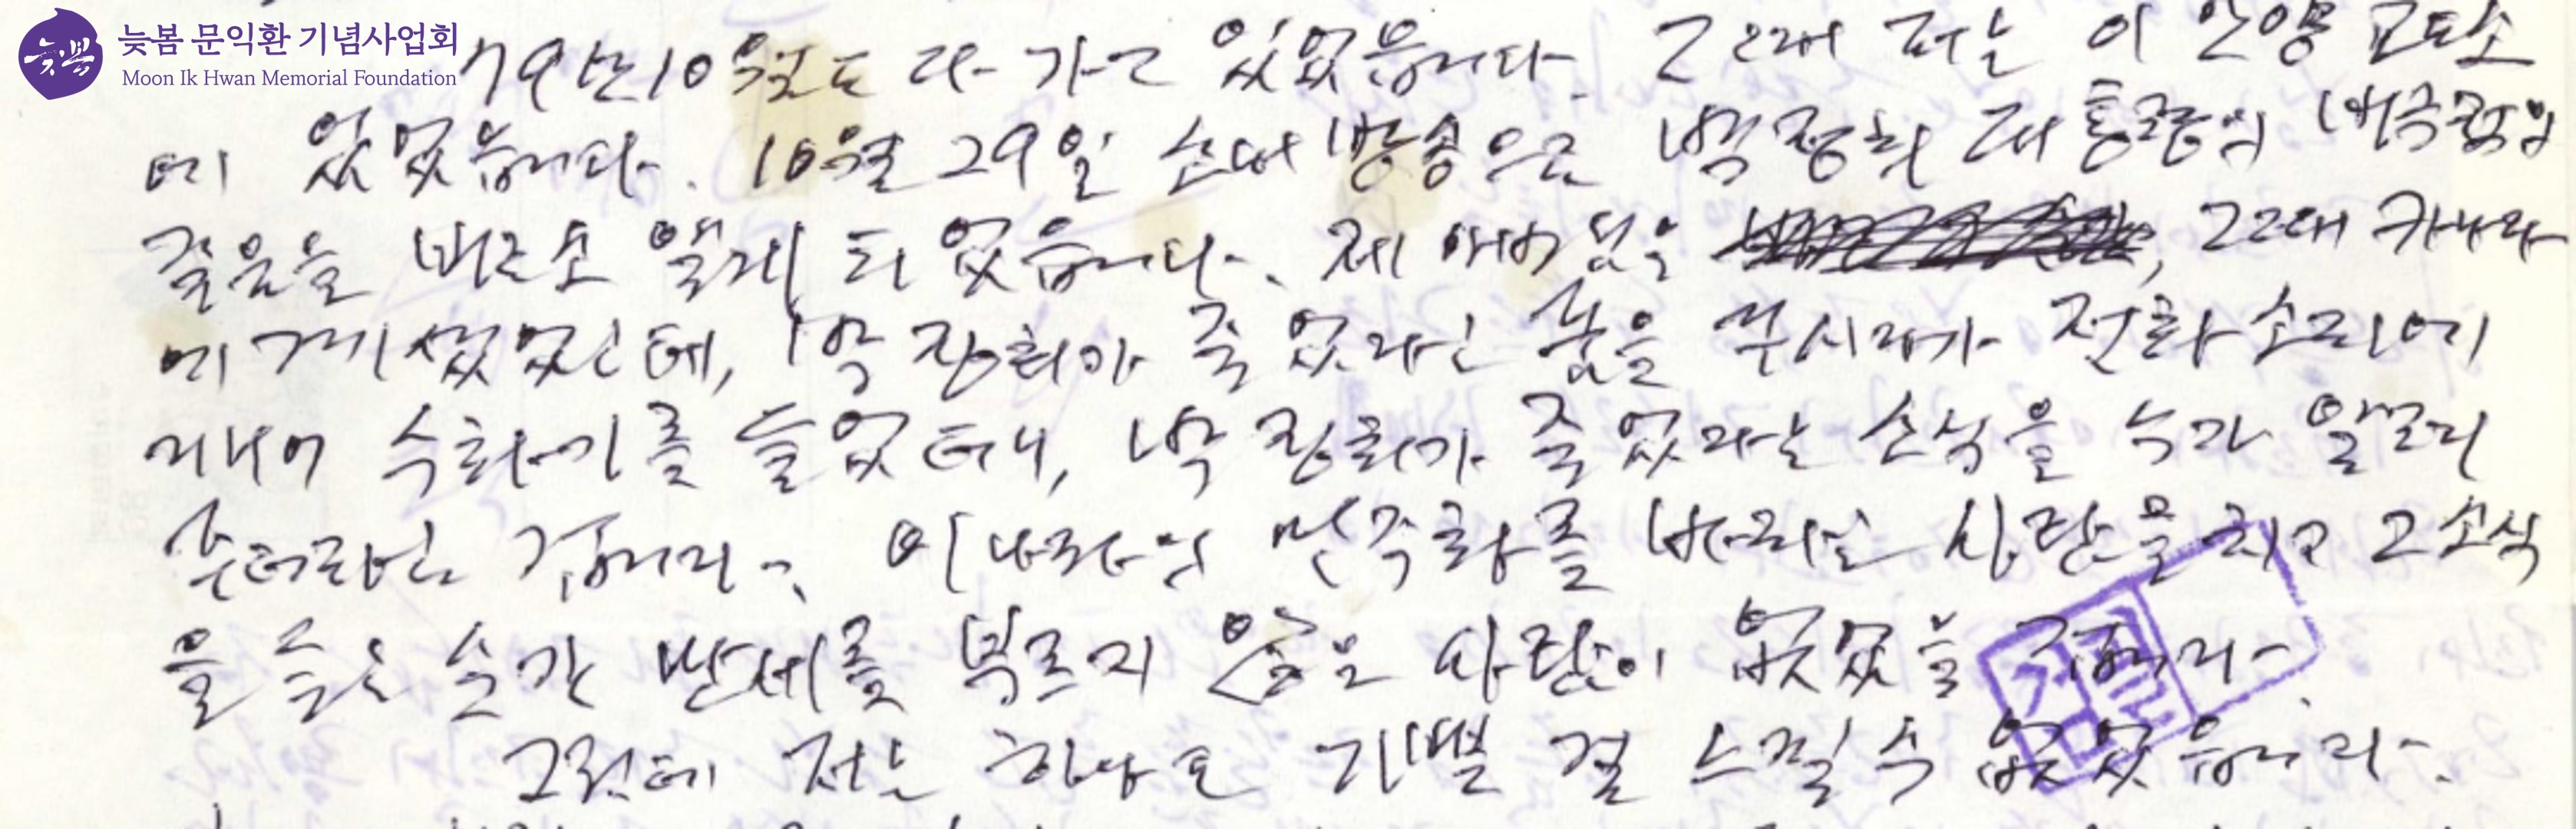 늦봄 문익환 기념사업회
Moon Ik Hwan Memorial Foundation
늦봄
79년 10월도 다 가고 있었읍니다. 그 때 저는 이 안양 교도소
에 있었읍니다. 10월 29일 소내 방송으로 박정희 대통령의 비극적인
죽음을 비로소 알게 되었읍니다. 제 아버님은 , 그때 카나다
에 계셨었는데, 박정희가 죽었다는 꿈을 꾸시다가 전화 소리에
깨어 수화기를 들었더니, 박정희가 죽었다는 소식을 누가 알려
주더라는 겁니다. 이 나라의 민주화를 바라는 사람 치고 그 소식
을 듣는 순간 만세를 부르지 않은 사람이 없었을 겁니다.
그런데 저는 하나도 기쁠 걸 느낄 수 없었읍니다.